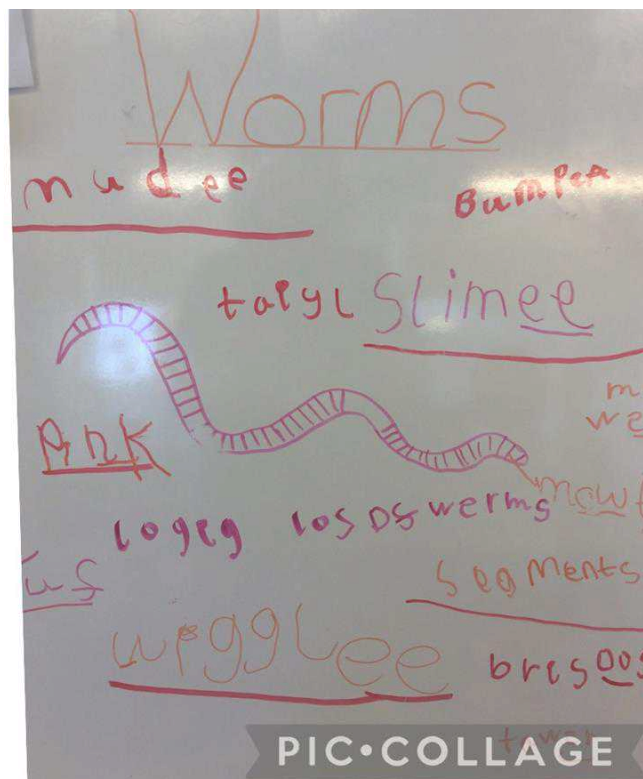 Worms
mudee
Bumpea
taiyl Slimee
m
we
Pink
mowf
logig los os werms
segments
wigglee
brisoos
PIC•COLLAGE